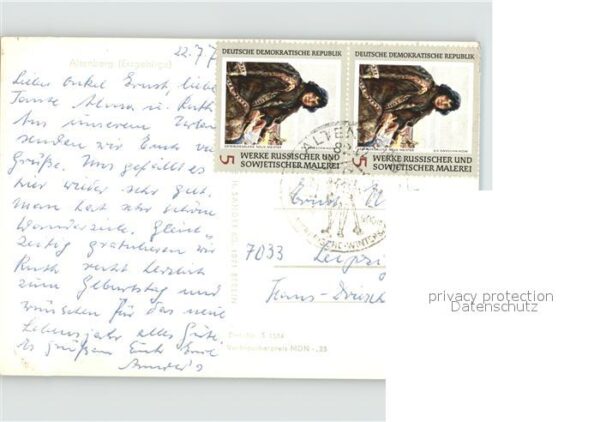 22.7.7
Altenberg (Erzgebirge)
Lieber Onkel Ernst, liebe
Tante Alma u. Ruth
Aus unserem Urlaub
senden wir Euch viele
Grüße. Uns gefällt es
hier wieder sehr gut,
man hat sehr schöne
Wanderziele. Gleich-
zeitig gratulieren wir
Ruth recht herzlich
zum Geburtstag und
wünschen für das neue
Lebensjahr alles Gute.
Es grüßen Euch
DEUTSCHE DEMOKRATISCHE REPUBLIK
5
WERKE RUSSISCHER UND
SOWJETISCHER MALEREI
DEUTSCHE DEMOKRATISCHE REPUBLIK
5
WERKE RUSSISCHER UND
SOWJETISCHER MALEREI
ALTENB
Ernst
7033 Leipzig
Hans-Driesch
Verbraucherpreis MDN -,25
privacy protection
Datenschutz